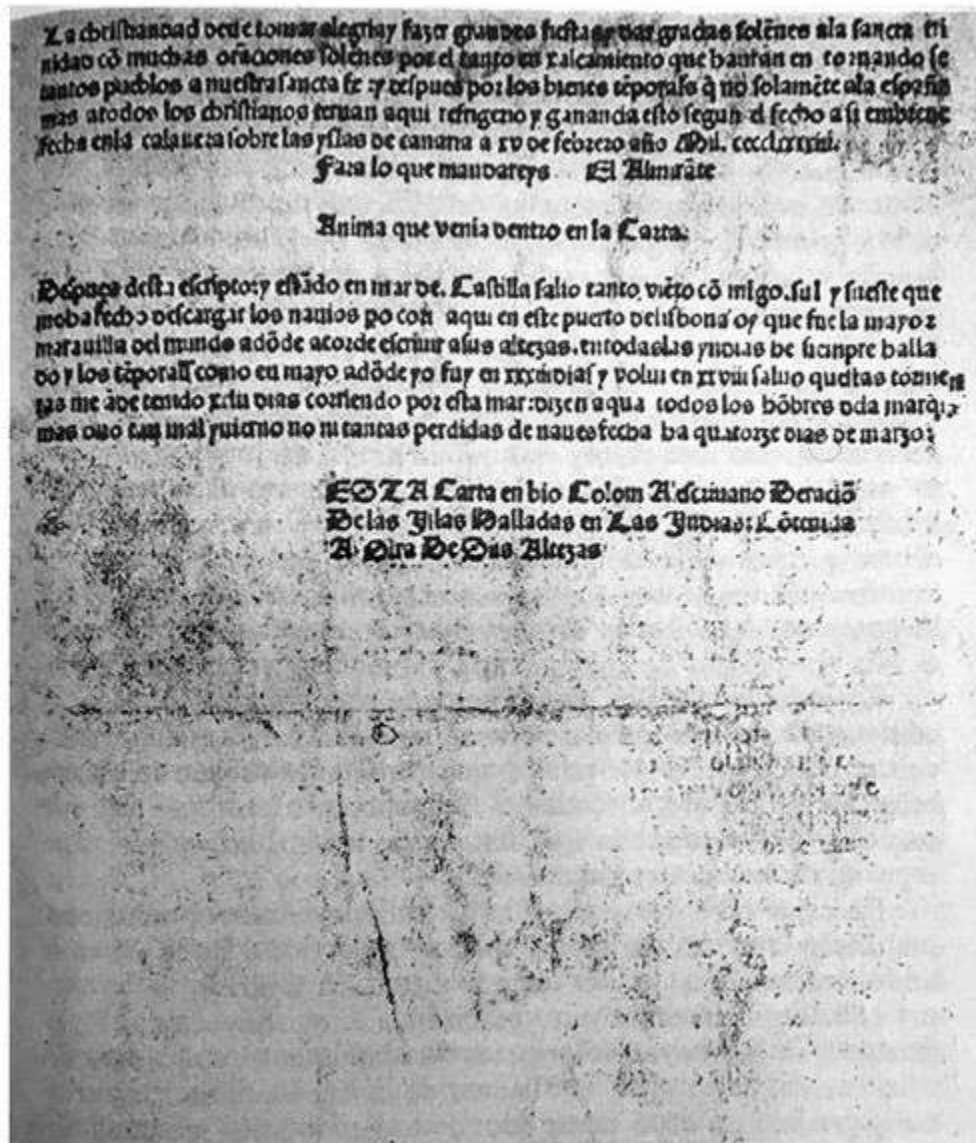 La christiandad deue tomar alegria y fazer grandes fiestas y dar gracias solẽnes ala sancta tri
nidad cõ muchas oraciones solẽnes por el tanto en xalcamiento que hauran en tornando se
tantos pueblos a nuestra sancta fe: y despues por los bienes tẽporales q̃ no solamẽte ala españa
mas atodos los christianos ternan aqui refrigerio y ganancia esto segun el fecho a si embreue
fecha enla calauera sobre las yslas de canaria a xv de febrero año Mil.
Fara lo que mandareys El Almirãte
Anima que venia dentro en la Carta.
Despues desta escripto: y estãdo en mar de. Castilla salio tanto viẽto cõ migo. sul y sueste que
me ha fecho descargar los nauios po cori aqui en este puerto delisbona oy que fue la mayor
marauilla del mundo adõde acorde escriuir asus altezas. entodas las yndias he siempre halla
do y los tẽporales como en mayo adõde yo fuy en xxxiii dias y volui en xxviii saluo questas tormẽ
tas me ãde tenido xiiii dias corriendo por esta mar: dizen aqua todos los hõbres dela mar q̃
mas ouo tan mal yuierno no ni tantas perdidas de naues fecha ha quatorze dias de março:
ESTA Carta en bio Colom A'escriuano Deraciõ
De las Yslas Halladas en Las Yndias: Cõtenida
A. Otra De Sus Altezas